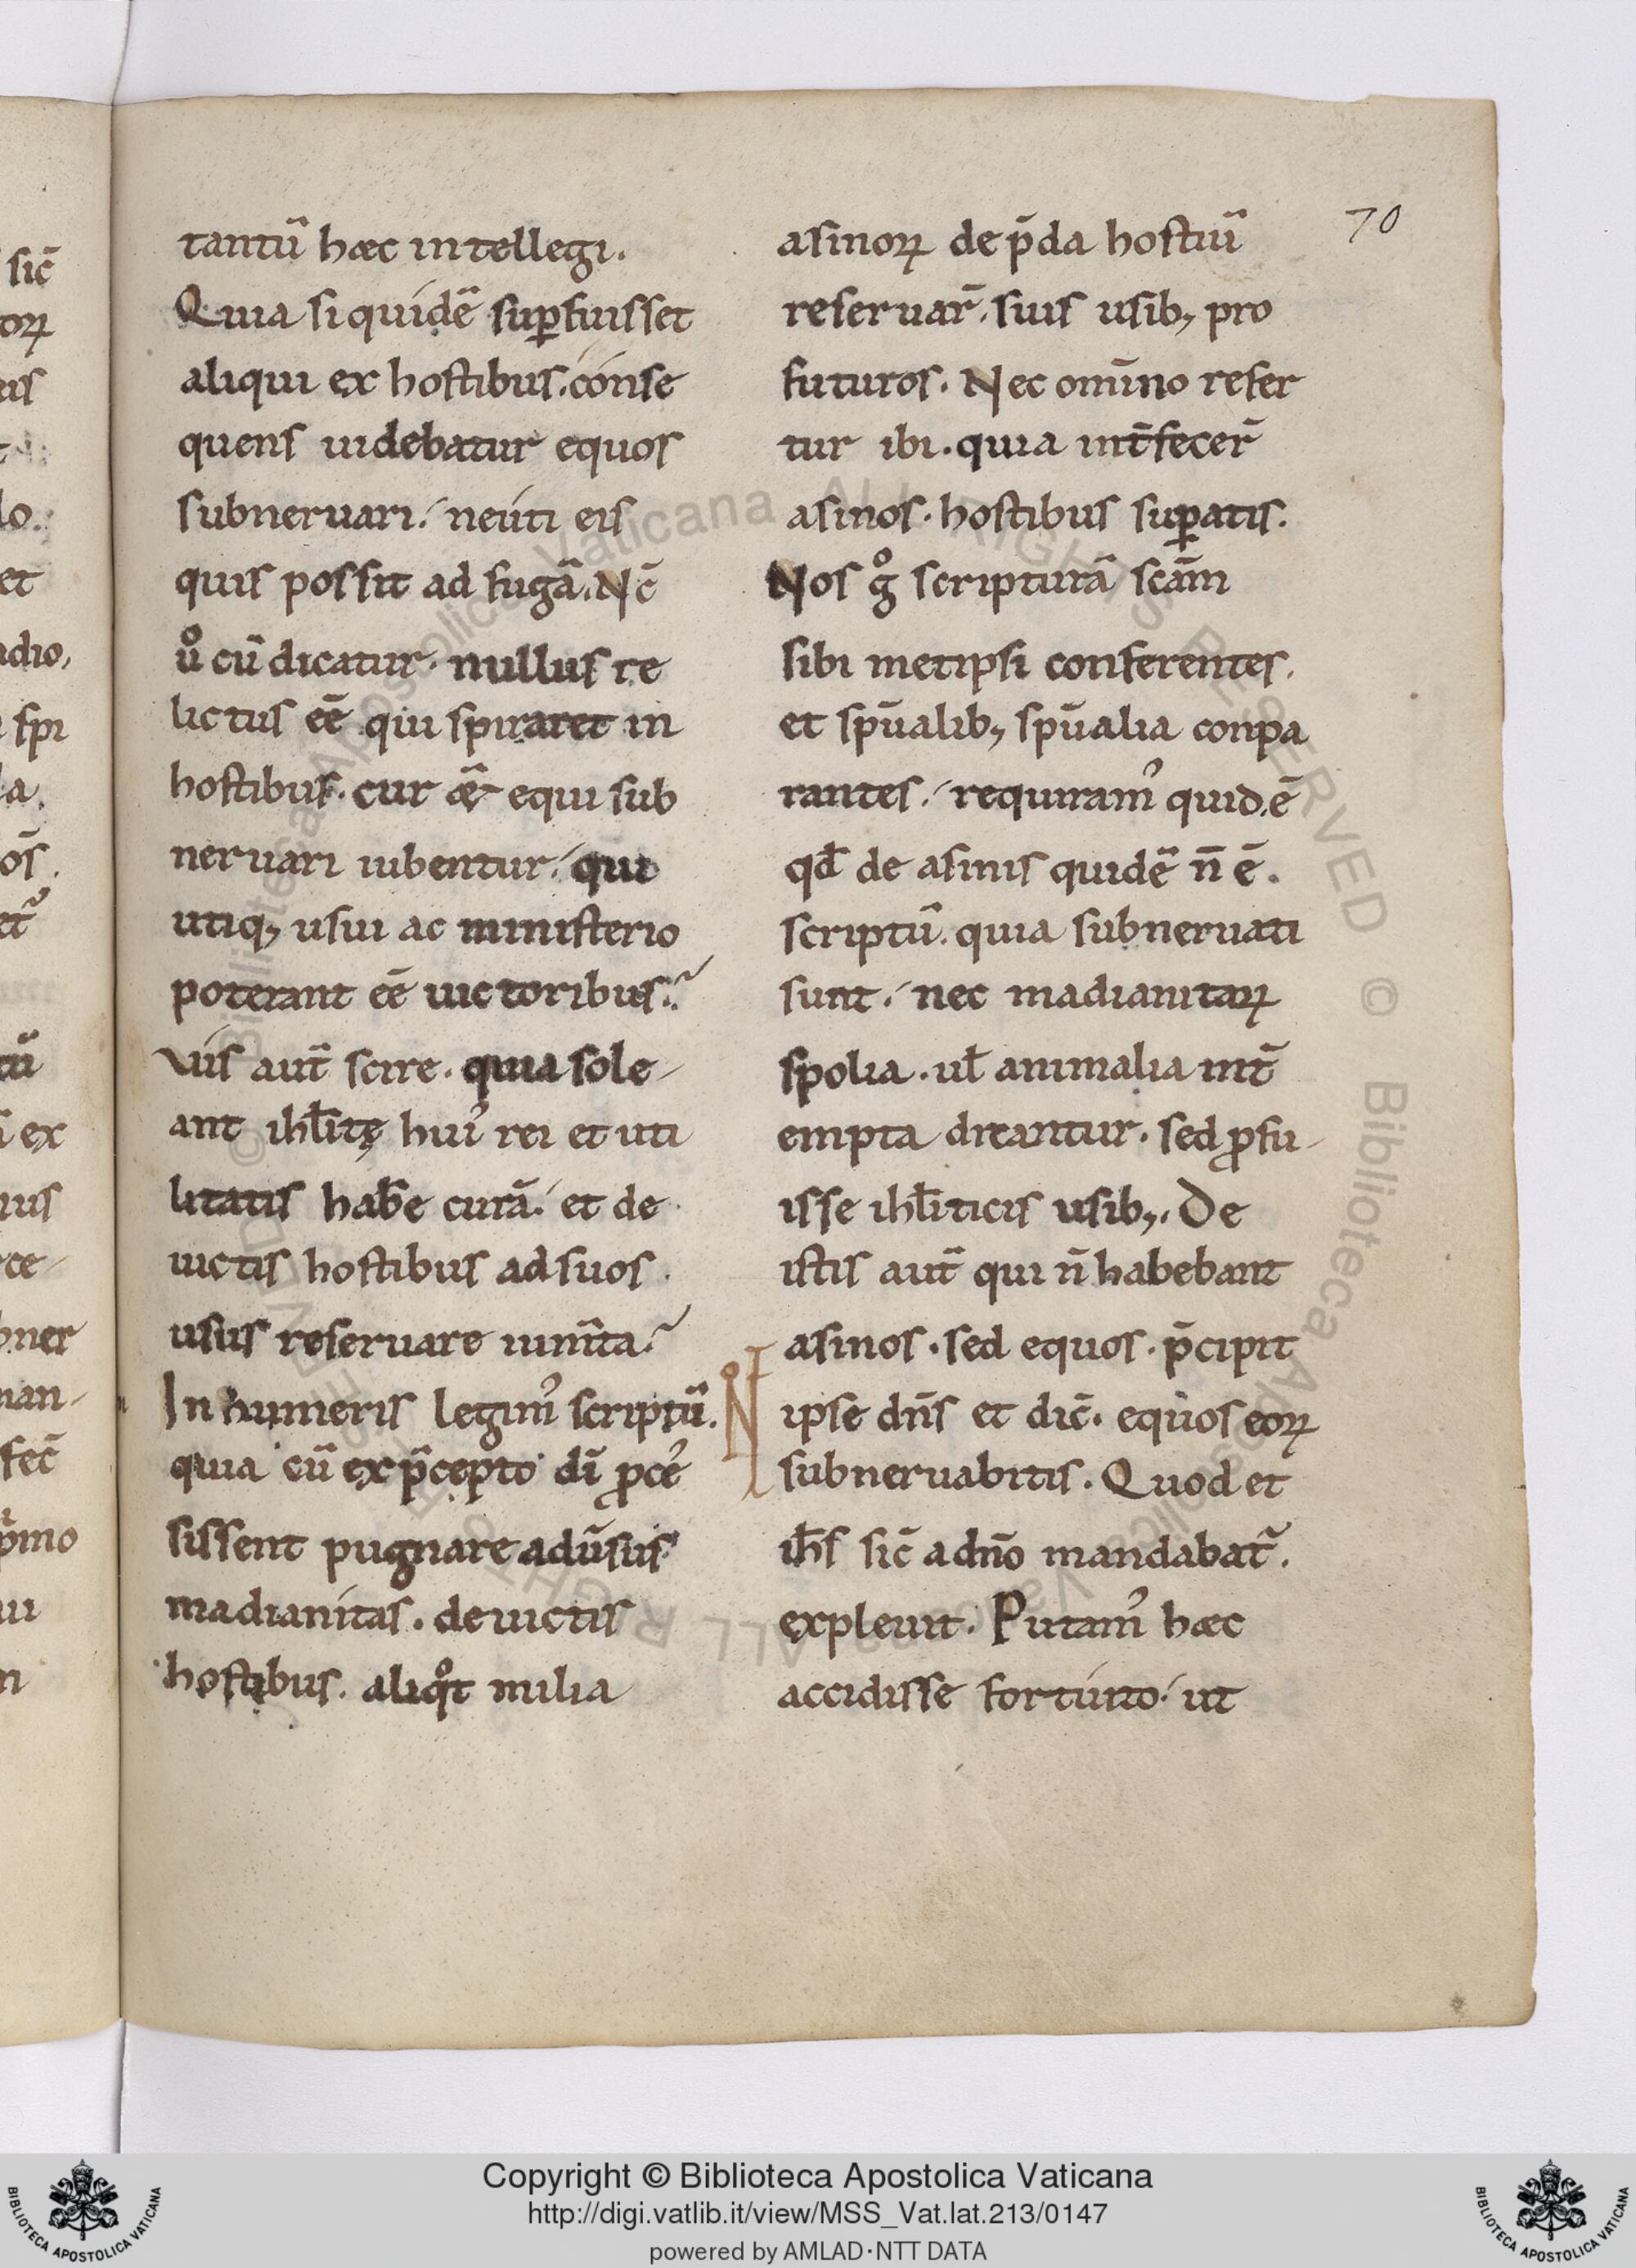 tantū hæc intellegi.
Quia si quidē sup̱fuisset
aliqui ex hostibus. conse
quens uidebatur equos
subneruari. ne uti eis
quis possit ad fugā. Nc̄
uͦ cū dicatur. nullus re
lictus eē qui spiraret in
hostibus. cur
neruari iubentur. qui
utiq; usui ac ministerio
poterant eē uictoribus?
Vis aut̄ scire. quia sole-
ant ihl̄itę hui᾽ rei et uti
litatis hab̄e curā. et de
uictis hostibus ad suos
usus reseruare iumt̄a?
In numeris legim᾽ scriptū.
quia cū ex p̄cepto dī ꝓce᾽
sissent pugnare adūsus
madianitas. deuictis
hostibus. aliqͦt milia
asinoꝝ de p̄da hostiū
reseruar̄. suis usib; pro
futuros. Nec omīno refer
tur ibi. quia int̄fecer̄
asinos. hostibus sup̱atis.
Nos gͦ scripturā scām
sibi metipsi conferentes.
et spūalib; spūalia conpa
rantes. requiram᾽ quid ē
qđ de asinis quidē n̄ ē.
scriptū. quia subneruati
sunt. nec madianitaꝝ
spolia. ul̄ animalia int̄
empta dicantur. sed ꝓfu-
isse ihl̄iticis usib;. De
istis aut̄ qui n̄ habebant
asinos. sed equos. p̄cipit
ipse dn̄s et dic̄. equos eoꝝ
subneruabitis. Quod et
ih̄s sic̄ a dn̄o mandabat̄.
expleuit. Putam᾽ hæc
accidisse fortuito. ut
70
sic̄
oꝝ
et
ex
fec̄
Copyright © Biblioteca Apostolica Vaticana
http://digi.vatlib.it/view/MSS_Vat.lat.213/0147
powered by AMLAD·NTT DATA
BIBLIOTECA APOSTOLICA VATICANA
BIBLIOTECA APOSTOLICA VATICANA